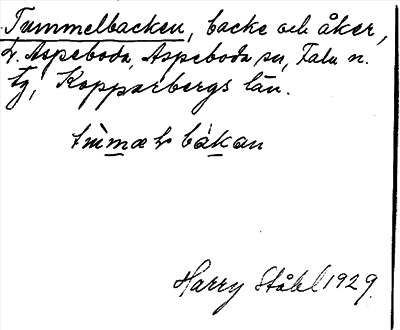 Tummelbacken, backe och åker,
L. Aspeboda, Aspeboda sn, Falu n.
tg, Kopparbergs län.
bákan
Harry Ståhl 1929.